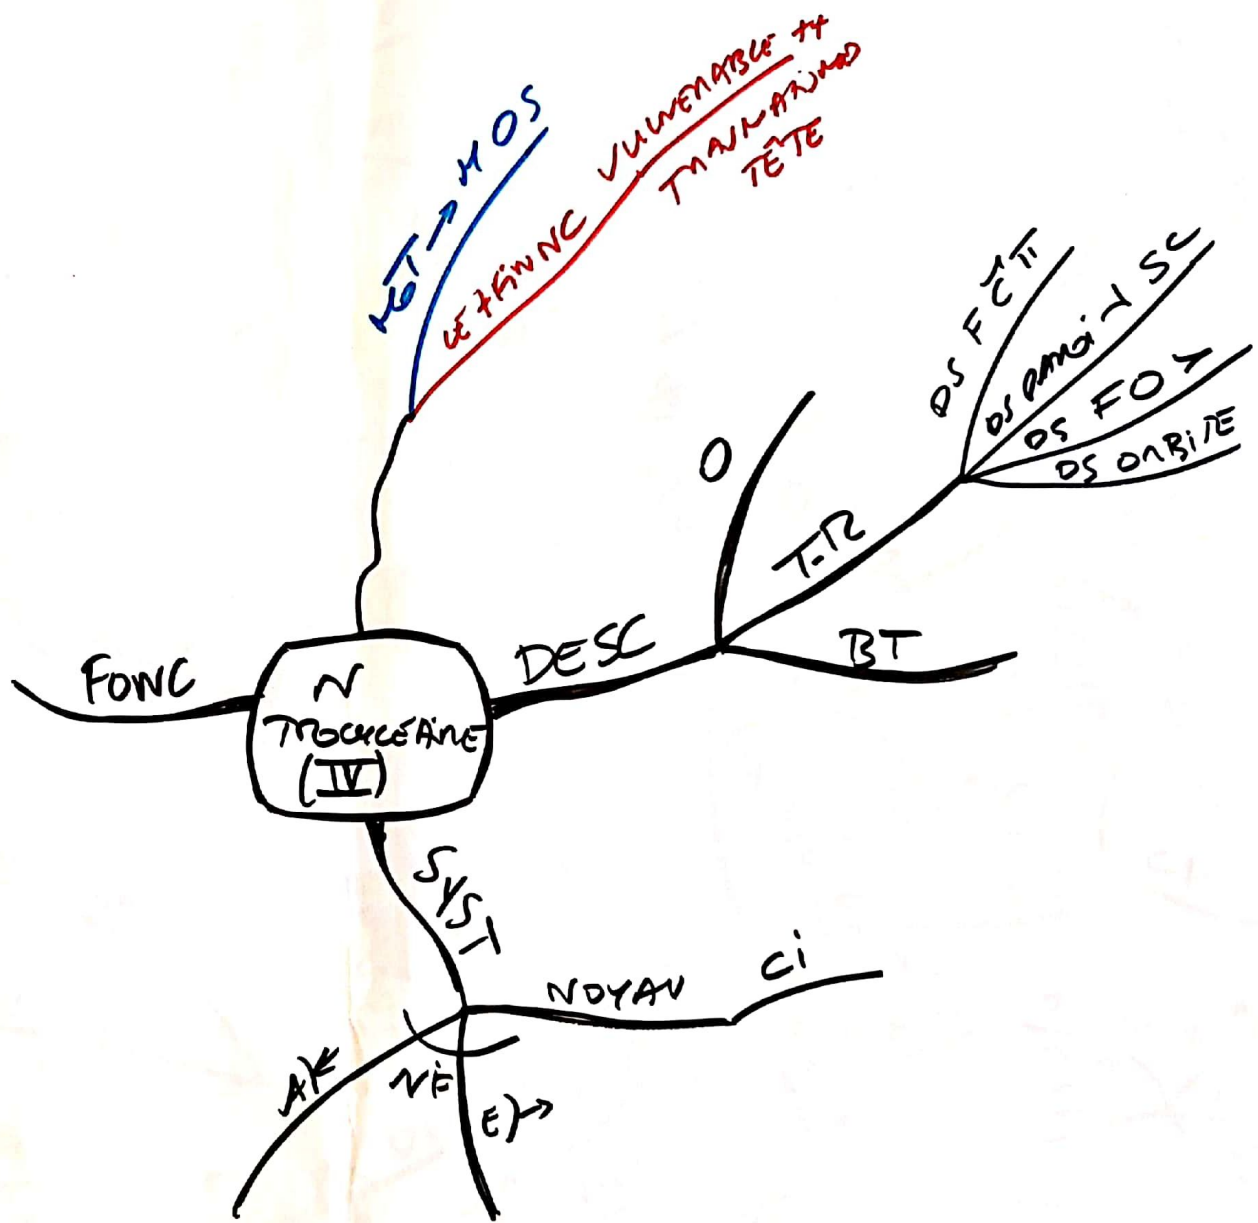 MOT → MOS
LE + FIN NC
VULNERABLE ++
TRAUMATISMES
TÊTE
DS ORBITE
DS FO
O
T-R
BT
DESC
FONC
N
TROCHLÉAIRE
(IV)
SYST
NOYAU
Ci
NE
E) →